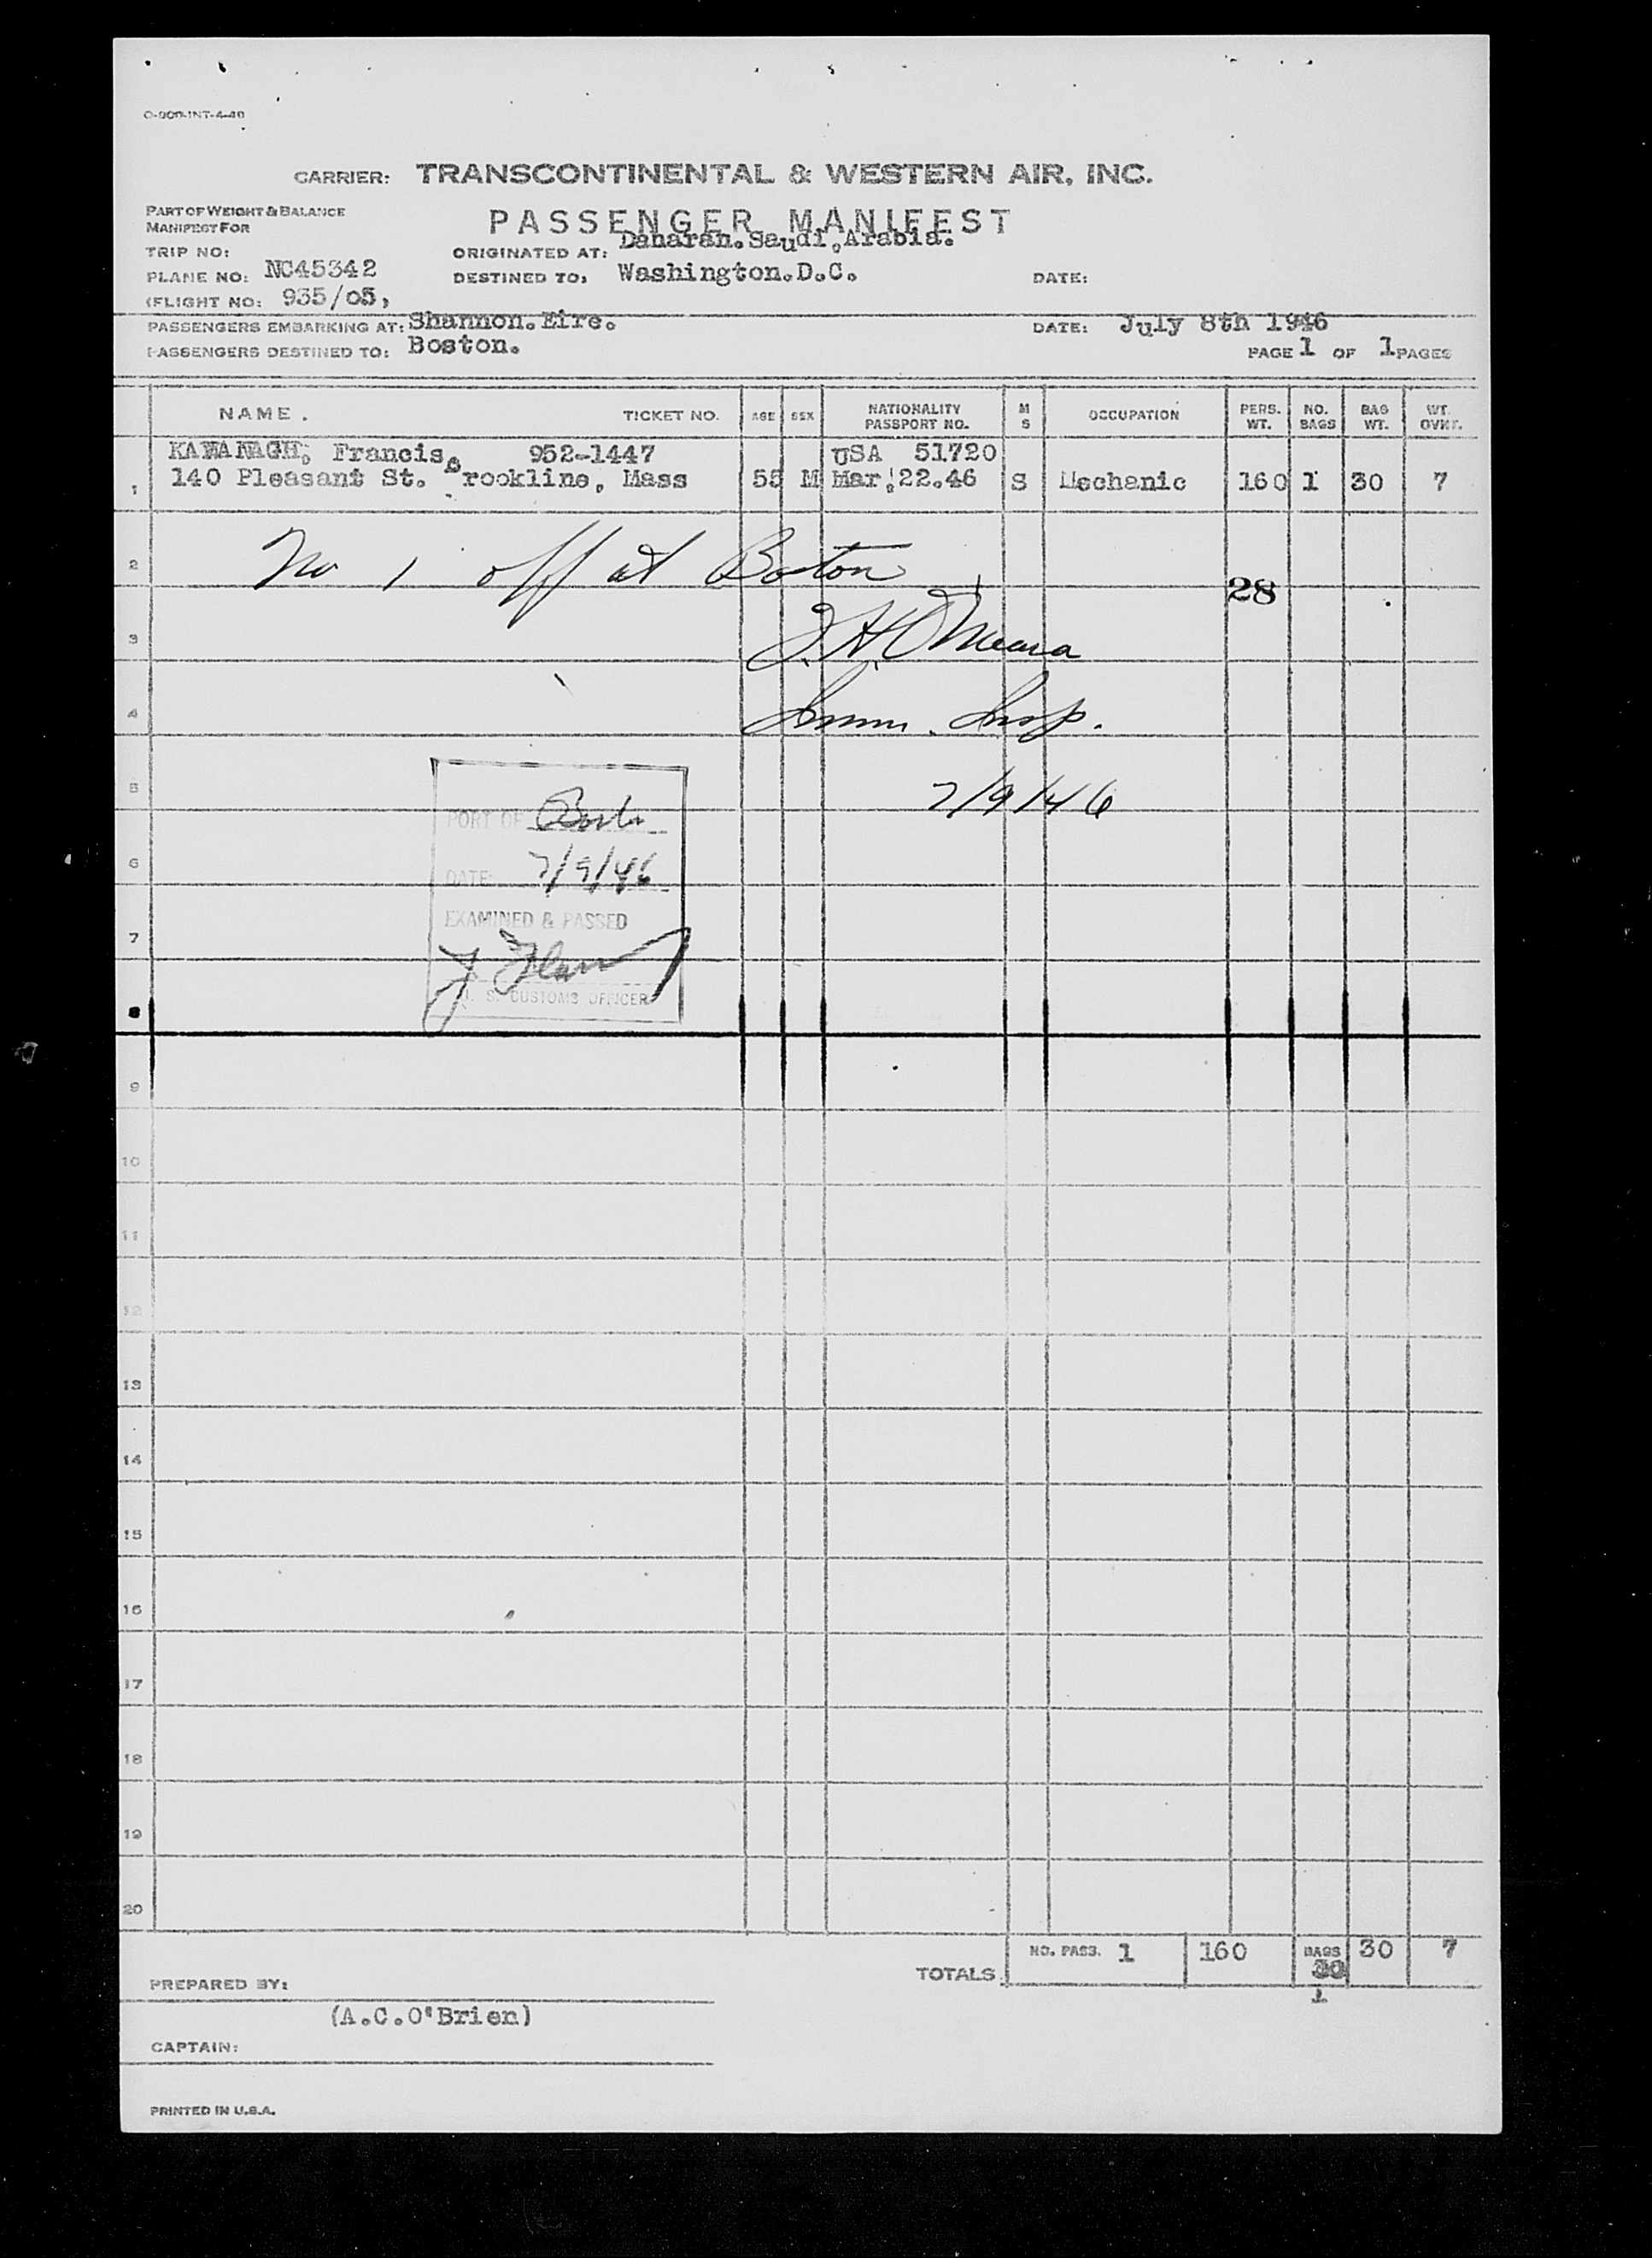 CARRIER: TRANSCONTINENTAL & WESTERN AIR, INC.
PART OF WEIGHT & BALANCE
MANIFEST FOR
PASSENGER MANIFEST
TRIP NO:
ORIGINATED AT: Daharan.Saudi,Arabia.
PLANE NO: NC45342
DESTINED TO: Washington.D.C.
DATE:
(FLIGHT NO: 935/05,
PASSENGERS EMBARKING AT: Shannon.Eire.
DATE: July 8th 1946
PASSENGERS DESTINED TO: Boston.
PAGE 1 OF 1 PAGES
NAME. TICKET NO. AGE SEX NATIONALITY PASSPORT NO. M S OCCUPATION PERS. WT. NO. BAGS BAG WT. WT. OVKT.
KAWANAGH, Francis, 952-1447 USA 51720
1 140 Pleasant St. Brookline, Mass 55 M Mar.22.46 S Mechanic 160 1 30 7
2 No 1 off at Boston
28
3 J.H.O'Meara
4 Imm. Insp.
5 7/9/46
PORT OF Boston
6
DATE: 7/9/46
EXAMINED & PASSED
7
U. S. CUSTOMS OFFICER
8
9
10
11
12
13
14
15
16
17
18
19
20
TOTALS NO. PASS. 1 160 BAGS 30 30 7
1
PREPARED BY:
(A.C.O'Brien)
CAPTAIN:
PRINTED IN U.S.A.